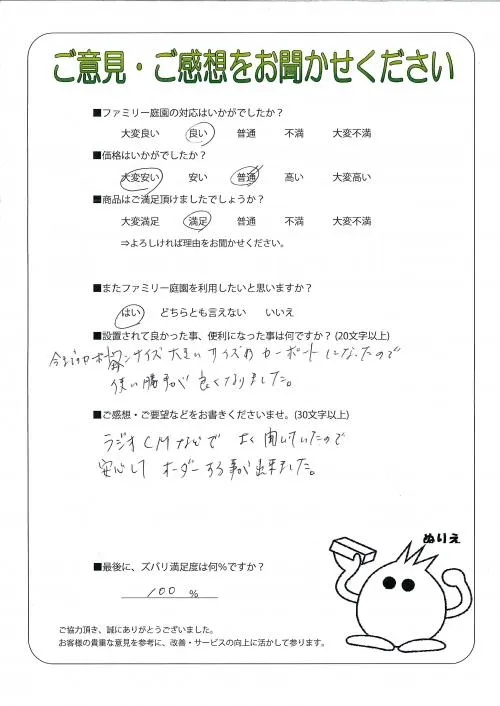 ご意見・ご感想をお聞かせください
■ファミリー庭園の対応はいかがでしたか？
大変良い 良い 普通 不満 大変不満
■価格はいかがでしたか？
大変安い 安い 普通 高い 大変高い
■商品はご満足頂けましたでしょうか？
大変満足 満足 普通 不満 大変不満
⇒よろしければ理由をお聞かせください。
■またファミリー庭園を利用したいと思いますか？
はい どちらとも言えない いいえ
■設置されて良かった事、便利になった事は何ですか？(20文字以上)
サイズ大きいサイズのカーポートになったので
使い勝手が良くなりました。
■ご感想・ご要望などをお書きくださいませ。(30文字以上)
ラジオCMなどでよく聞いていたので
安心してオーダーする事が出来ました。
ぬりえ
■最後に、ズバリ満足度は何％ですか？
100 %
ご協力頂き、誠にありがとうございました。
お客様の貴重な意見を参考に、改善・サービスの向上に活かして参ります。